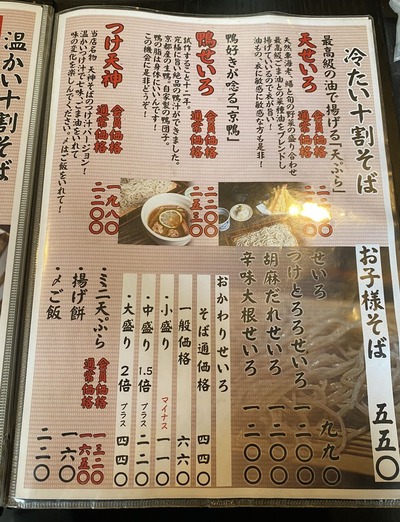 冷たい十割そば
最高級の油で揚げる「天ぷら」
天せいろ
天然車海老、鱚と旬の野菜の盛り合わせ
会員価格
通常価格
鴨好きが唸る「京鴨」
鴨せいろ
試作すること十二年。
究極に旨い絶品の鴨汁ができました。
京都産の生鴨、自家製の鴨団子。
鴨の脂は身体にいいんです！
この機会に是非どうぞ！
会員価格
通常価格
二五三〇
つけ天神
当店名物 天神そばのつけ汁バージョン！
会員価格
通常価格
一九八〇
二二〇〇
お子様そば 五五〇
せいろ 九九〇
つけとろろせいろ 一二一〇
胡麻だれせいろ 一二一〇
辛味大根せいろ 一二一〇
おかわりせいろ
そば通価格 四四〇
一般価格 六六〇
・小盛り マイナス 一一〇
・中盛り 1.5倍 プラス 二二〇
・大盛り 2倍 プラス 四四〇
・ミニ天ぷら 会員価格 一三二〇
通常価格 一六五〇
・揚げ餅 一六〇
・〆ご飯 二二〇
温かい十割そば